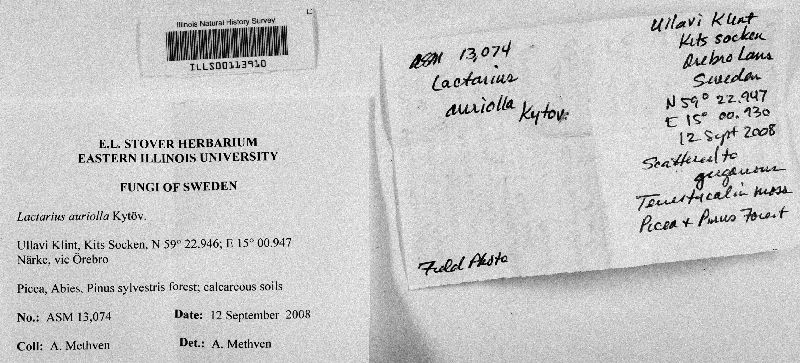 Illinois Natural History Survey
ILLS00113910
E.L. STOVER HERBARIUM
EASTERN ILLINOIS UNIVERSITY
FUNGI OF SWEDEN
Lactarius auriolla Kytöv.
Ullavi Klint, Kits Socken, N 59° 22.946; E 15° 00.947
Närke, vic Örebro
Picea, Abies, Pinus sylvestris forest; calcareous soils
No.: ASM 13,074 Date: 12 September 2008
Coll: A. Methven Det.: A. Methven
ASM 13,074
Lactarius
auriolla Kytov.
Field Photo
Ullavi Klint
Kits socken
Örebro Lans
Sweden
N 59° 22.947
E 15° 00.930
12 Sept 2008
Scattered to
gregarious
Terrestrial in moss
Picea + Pinus Forest